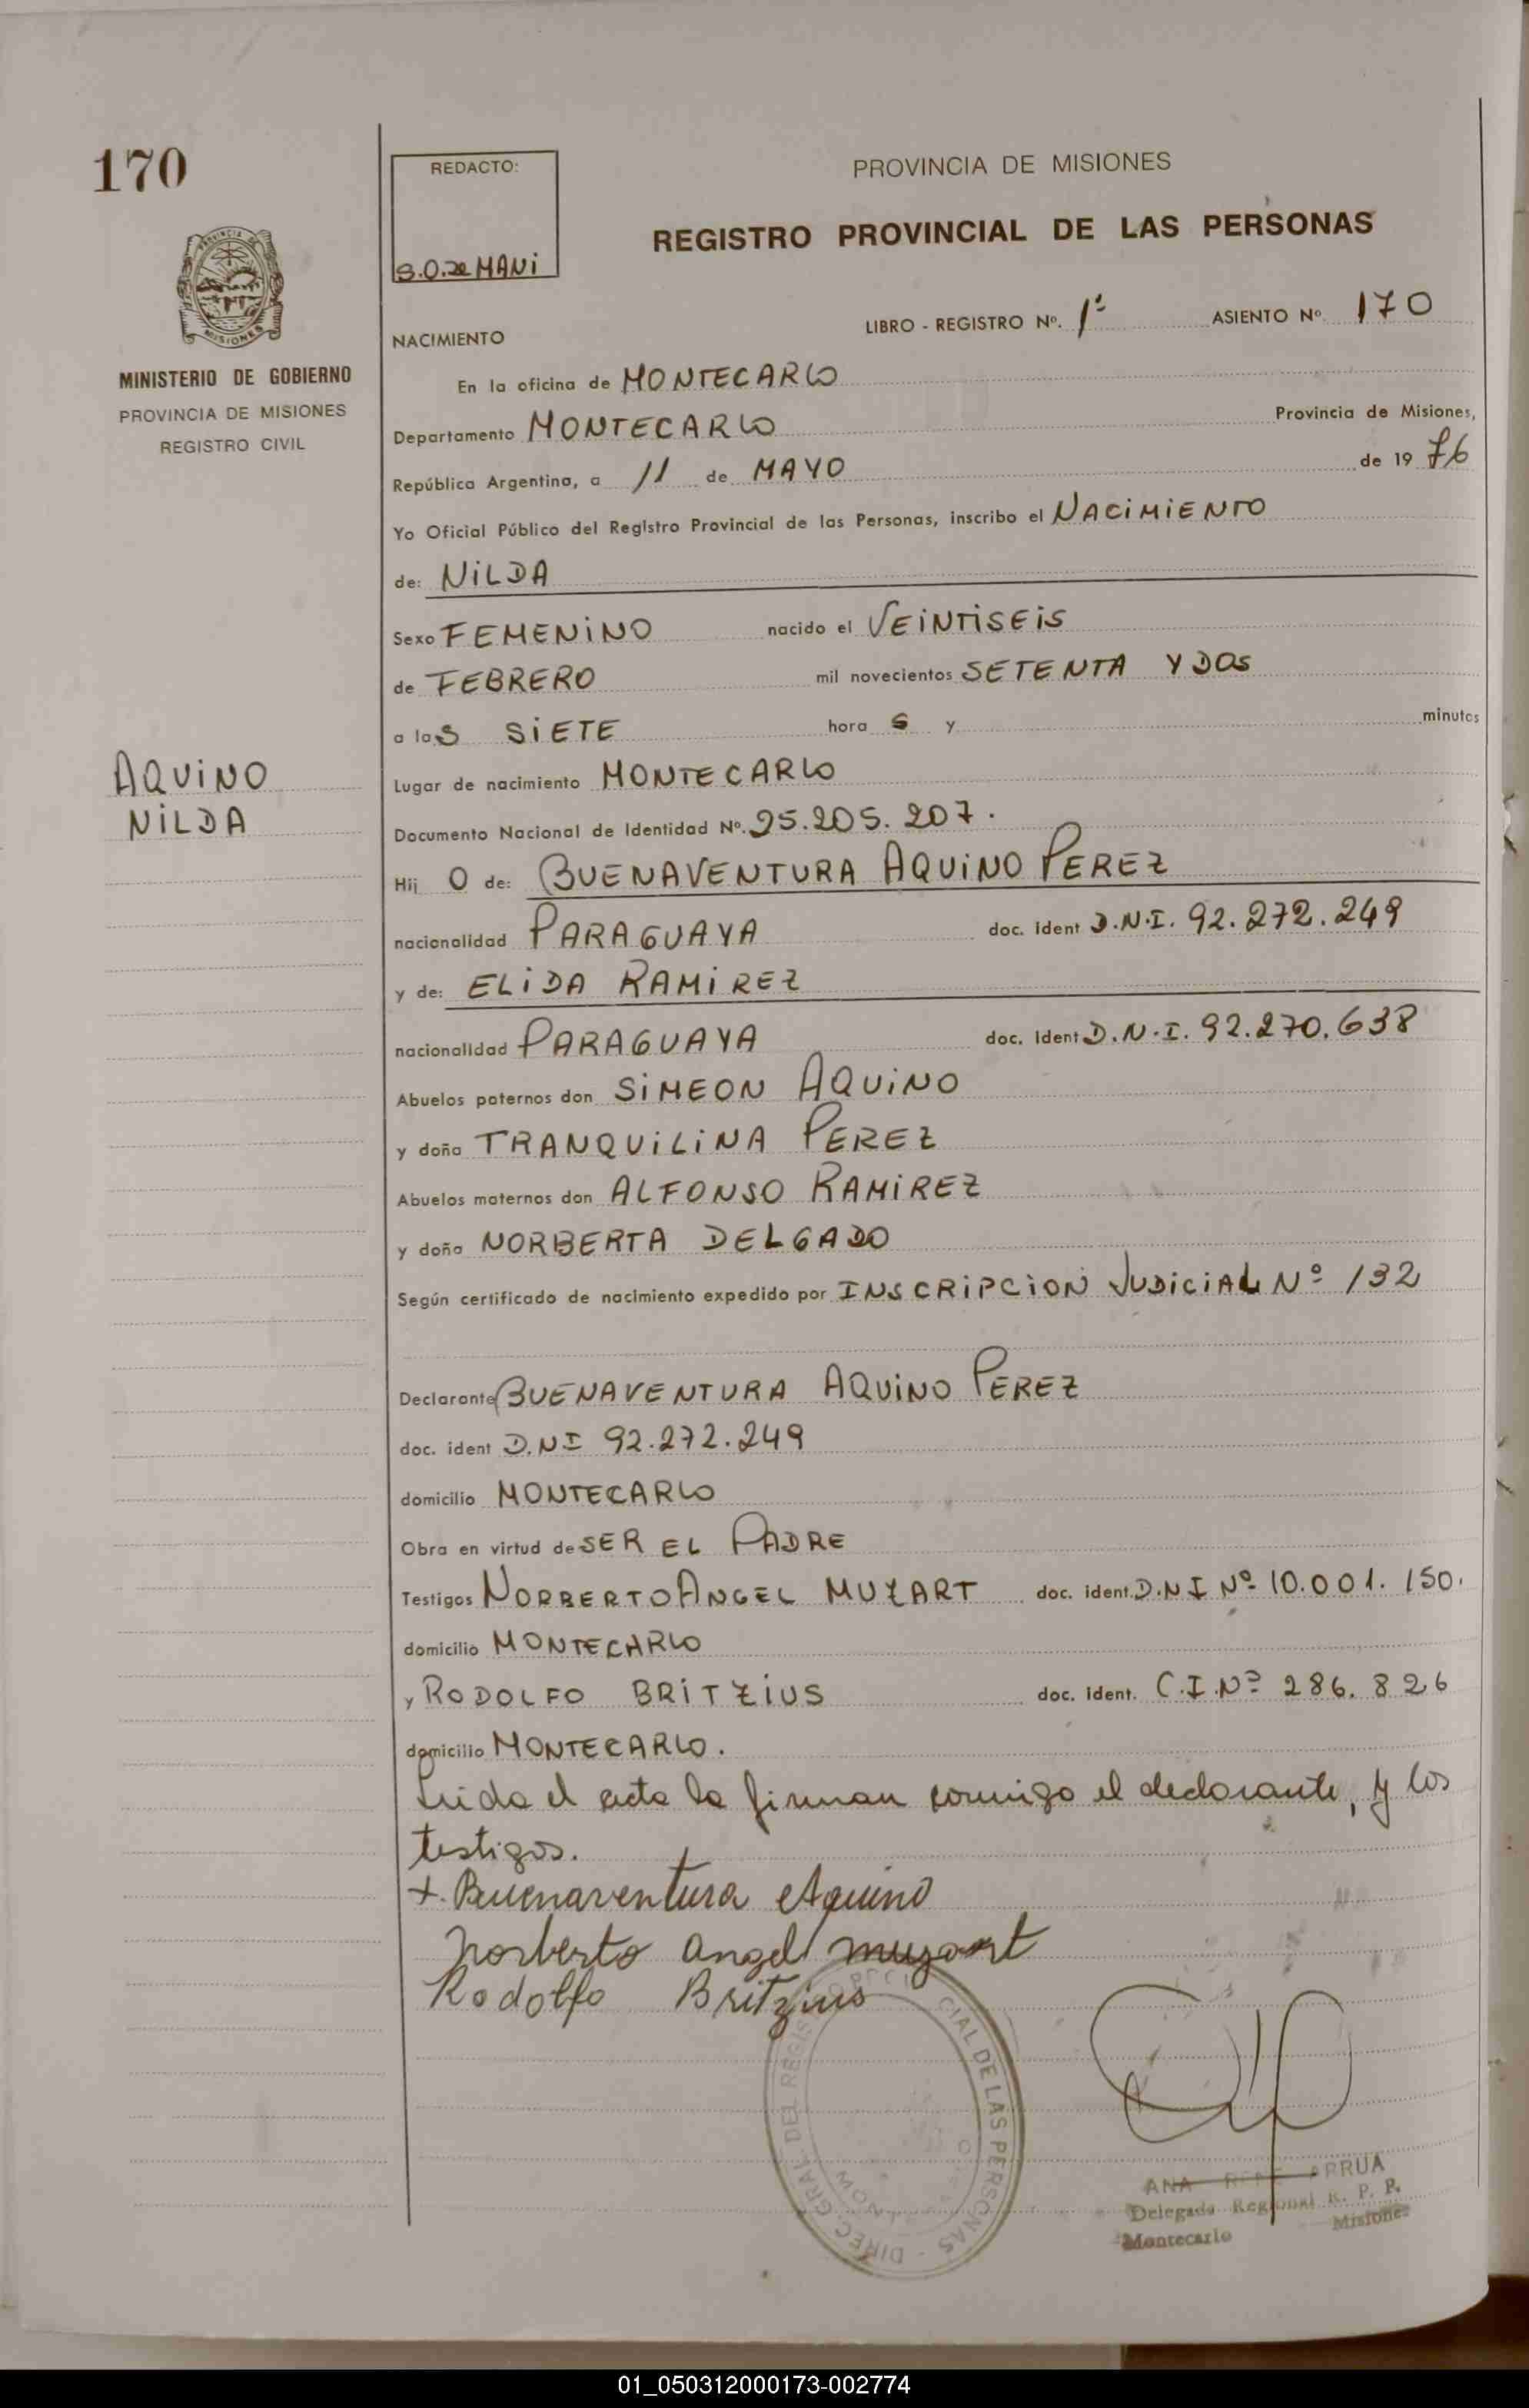 170
REDACTO:
S.O. de MANI
PROVINCIA DE MISIONES
REGISTRO PROVINCIAL DE LAS PERSONAS
PROVINCIA DE
MISIONES
MINISTERIO DE GOBIERNO
PROVINCIA DE MISIONES
REGISTRO CIVIL
NACIMIENTO
LIBRO - REGISTRO Nº. 1º ASIENTO Nº. 170
En la oficina de MONTECARLO
Departamento MONTECARLO Provincia de Misiones,
República Argentina, a 11 de MAYO de 19 76
Yo Oficial Público del Registro Provincial de las Personas, inscribo el NACIMIENTO
de: NILDA
Sexo FEMENINO nacido el VEINTISEIS
de FEBRERO mil novecientos SETENTA Y DOS
a las SIETE hora S y minutos
AQUINO
NILDA
Lugar de nacimiento MONTECARLO
Documento Nacional de Identidad Nº. 25.205.207.
Hij O de: BUENAVENTURA AQUINO PEREZ
nacionalidad PARAGUAYA doc. ident D.N.I. 92.272.249
y de: ELIDA RAMIREZ
nacionalidad PARAGUAYA doc. ident D.N.I. 92.270.638
Abuelos paternos don SIMEON AQUINO
y doña TRANQUILINA PEREZ
Abuelos maternos don ALFONSO RAMIREZ
y doña NORBERTA DELGADO
Según certificado de nacimiento expedido por INSCRIPCION JUDICIAL Nº 132
Declarante BUENAVENTURA AQUINO PEREZ
doc. ident D.N I 92.272.249
domicilio MONTECARLO
Obra en virtud de SER EL PADRE
Testigos NORBERTO ANGEL MUZART doc. ident. D.N I Nº 10.001.150.
domicilio MONTECARLO
y RODOLFO BRITZIUS doc. ident. C.I.Nº 286.826
domicilio MONTECARLO.
Leida el acta la firman conmigo el declarante, y los
testigos.
+. Buenaventura Aquino
Norberto Angel Muzart
Rodolfo Britzius
DIREC. GRAL. DEL REGISTRO PROVINCIAL DE LAS PERSONAS
ANA ARRUA
Delegada Regional R. P. P.
Montecarlo Misiones
01_050312000173-002774